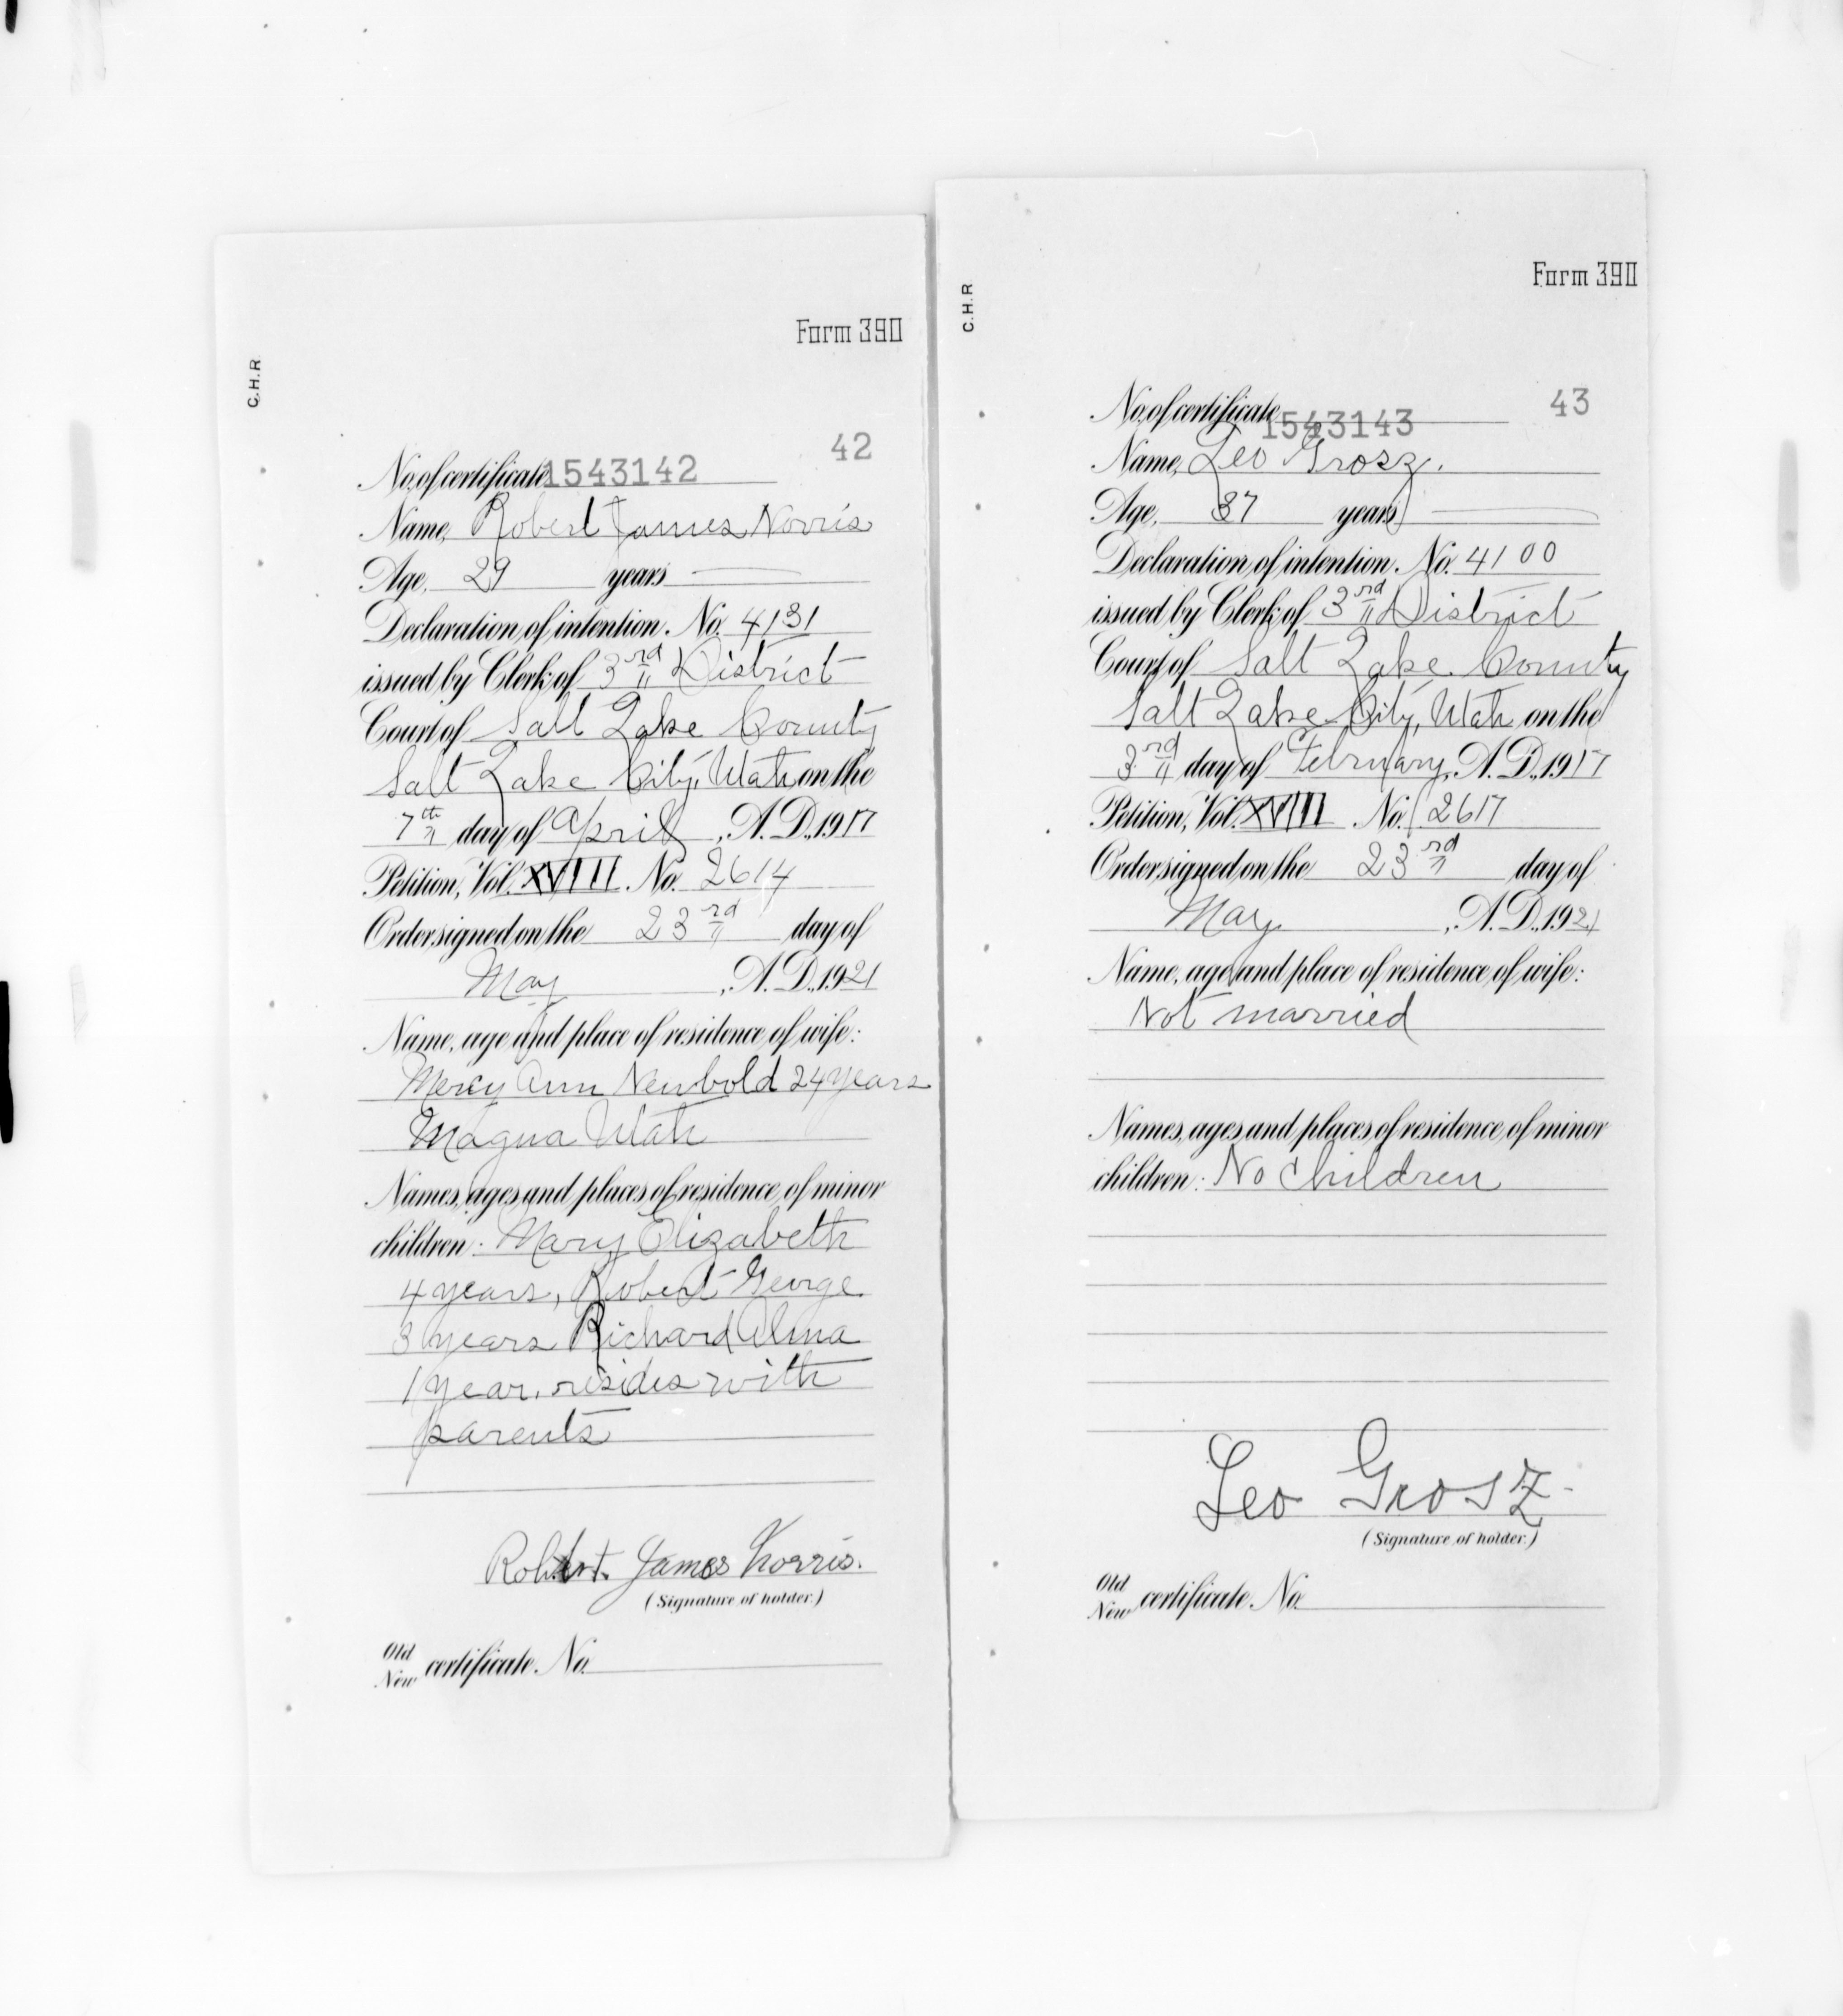 Form 390
C.H.R
42
No. of certificate 1543142
Name, Robert James Norris
Age, 29 years
Declaration of intention. No. 4131
issued by Clerk of 3rd District
Court of Salt Lake County
Salt Lake City, Utah on the
7th day of April, A.D., 1917
Petition, Vol. XVIII. No. 2614
Order signed on the 23rd day of
May, A.D., 1921
Name, age and place of residence of wife:
Mercy Ann Newbold 24 years
Magna Utah
Names, ages and places of residence of minor
children: Mary Elizabeth
4 years, Robert George
3 years Richard Alma
1 year, resides with
parents
Robert James Norris.
(Signature of holder.)
Old
New certificate No.
Form 390
C.H.R
43
No. of certificate 1543143
Name, Leo Grosz.
Age, 37 years
Declaration of intention. No. 4100
issued by Clerk of 3rd District
Court of Salt Lake County
Salt Lake City, Utah on the
3rd day of February, A.D., 1917
Petition, Vol. XVIII. No. 2617
Order signed on the 23rd day of
May, A.D., 1921
Name, age and place of residence of wife:
Not married
Names, ages and places of residence of minor
children: No children
Leo Grosz
(Signature of holder.)
Old
New certificate No.